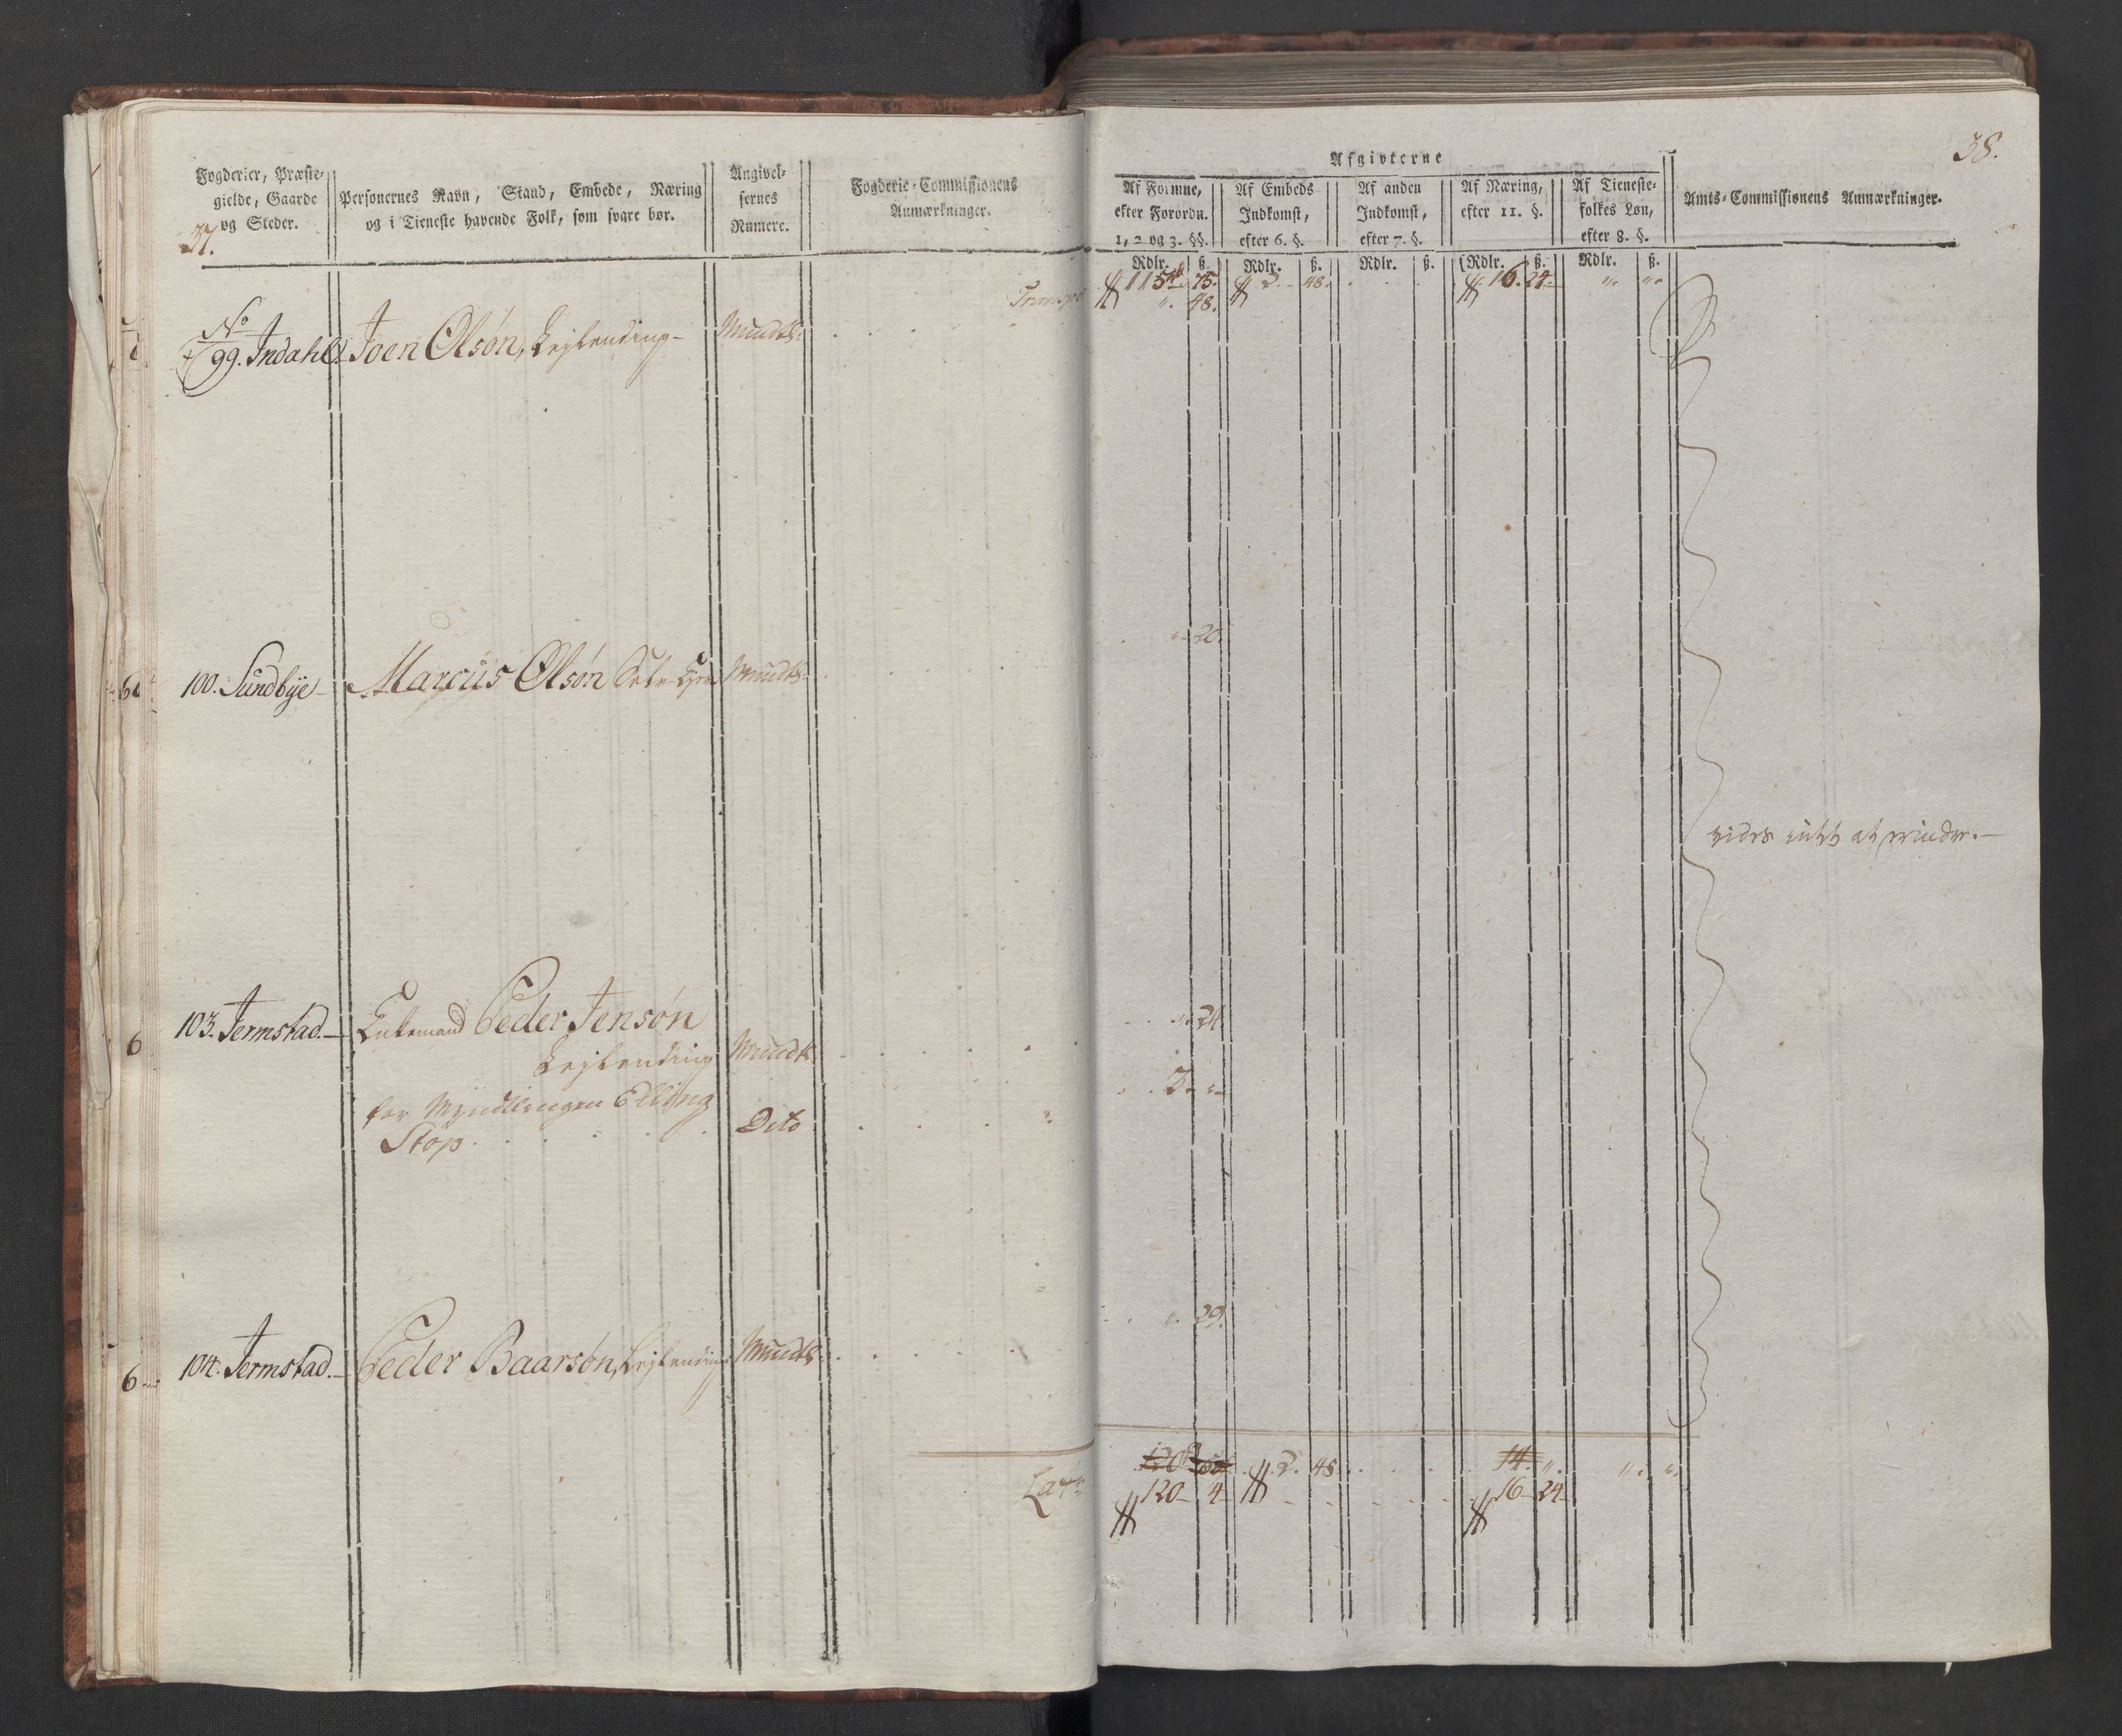 Fogderier, Præste-
gielde, Gaarde
og Steder.
37.
Personernes Navn, Stand, Embede, Næring
og i Tieneste havende Folk, som svare bør.
Angivel-
sernes
Numere.
Fogderie-Commissionens
Anmærkninger.
No
99. Indahl Joen Olsøn, Lejlending - Mundtl:
100. Sundbye - Marcus Olsøn Selv-Ejer Mundtl:
103. Jermstad. - Enkemand Peder Jensøn
Lejlending Mundtl
for Myndlingen Elling
Støp Dito
104. Jermstad. - Peder Baarsøn, Lejlending Mundtl:
Lat:
38.
Afgivterne
Af Formue,
efter Forordn.
1, 2 og 3. §§.
Af Embeds
Indkomst,
efter 6. §.
Af anden
Indkomst,
efter 7. §.
Af Næring,
efter 11. §.
Af Tieneste-
folkes Løn,
efter 8. §.
Amts-Commissionens Anmærkninger.
Rdlr. ß. Rdlr. ß. Rdlr. ß. Rdlr. ß. Rdlr. ß.
115 75. 2 48. 16. 24. " "
" 48.
" 20.
vides intet at erindre. -
" 24
3 "
" 29.
2. 48 14 " " "
120 - 4 - 16 - 24